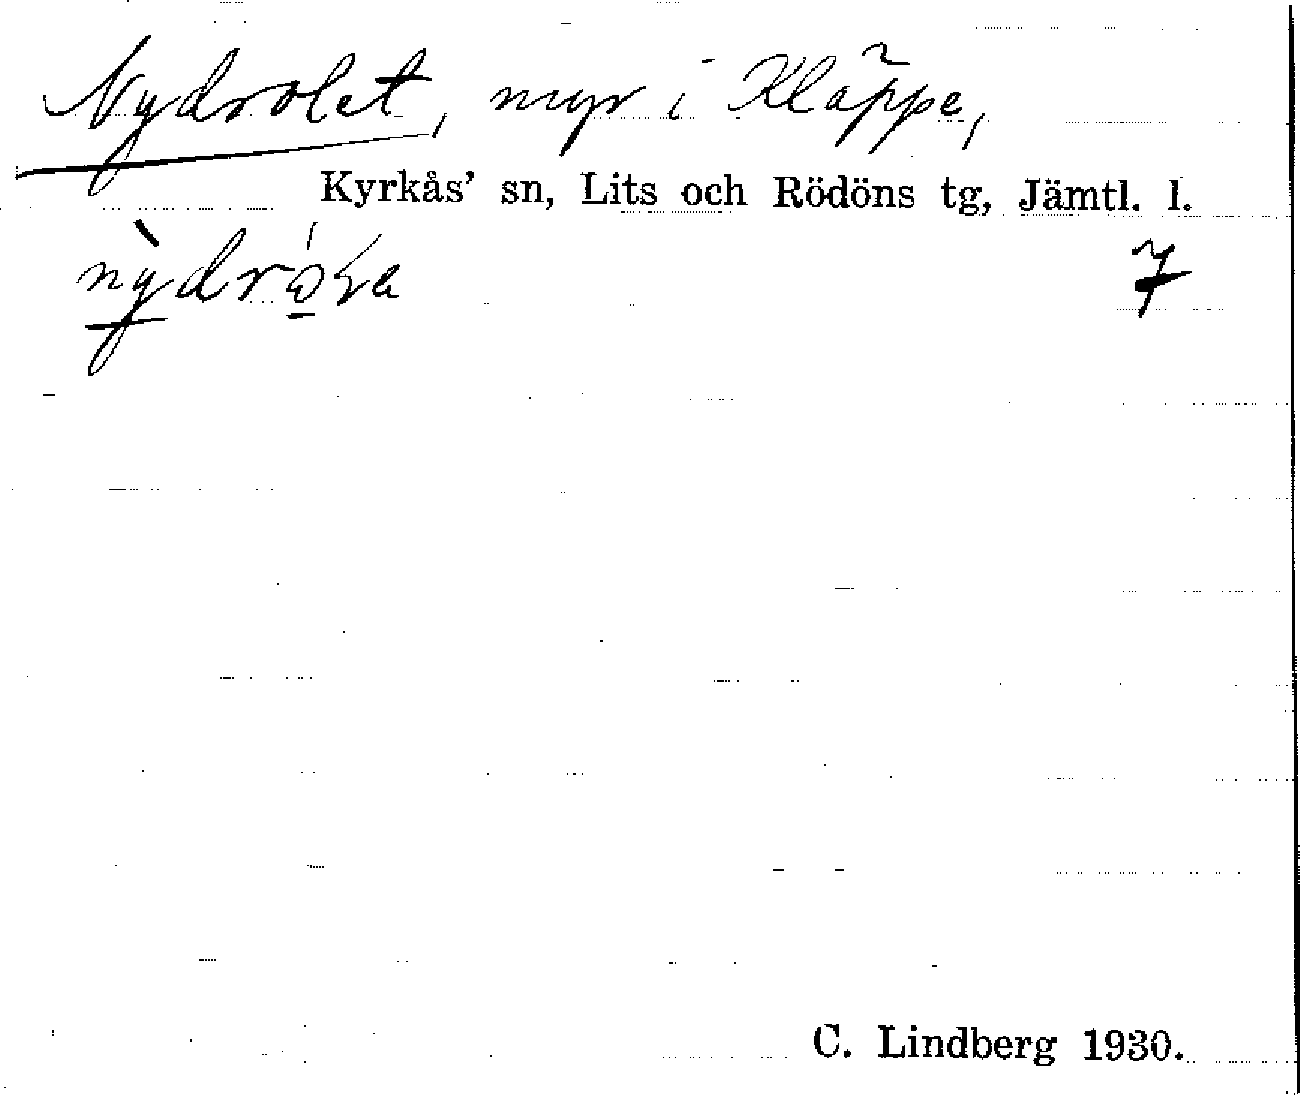 Nydrolet, myr i Kläppe,
Kyrkås' sn, Lits och Rödöns tg, Jämtl. l.
7
C. Lindberg 1930.